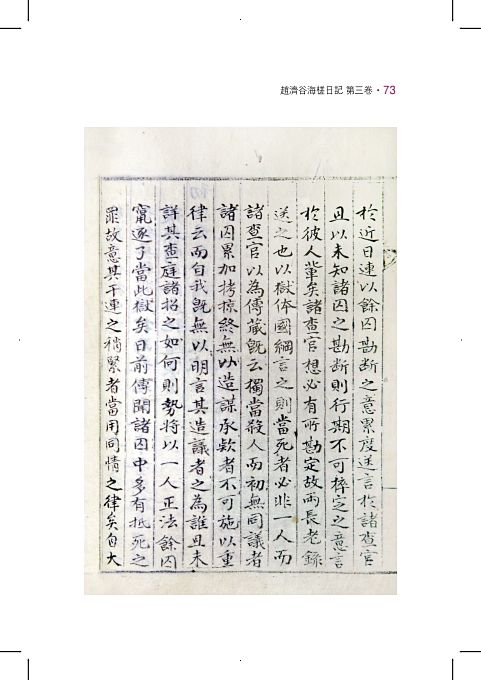 趙濟谷海槎日記 第三卷 • 73
於近日連以餘囚勘斷之意累度送言於諸査官
且以未知諸囚之勘斷則行期不可桙定之意言
於彼人輩矣諸査官想必有所勘定故兩長老錄
送之也以獄体國綱言之則當死者必非一人而
諸査官以為傳藏旣云獨當殺人而初無同議者
諸囚累加拷掠終無以造謀承欵者不可施以重
律云而自我旣無以明言其造議者之為誰且未
詳其査庭諸招之如何則勢將以一人正法餘囚
竄逐了當此獄矣日前傳聞諸囚中多有抵死之
罪故意其干連之稍緊者當用同情之律矣自大